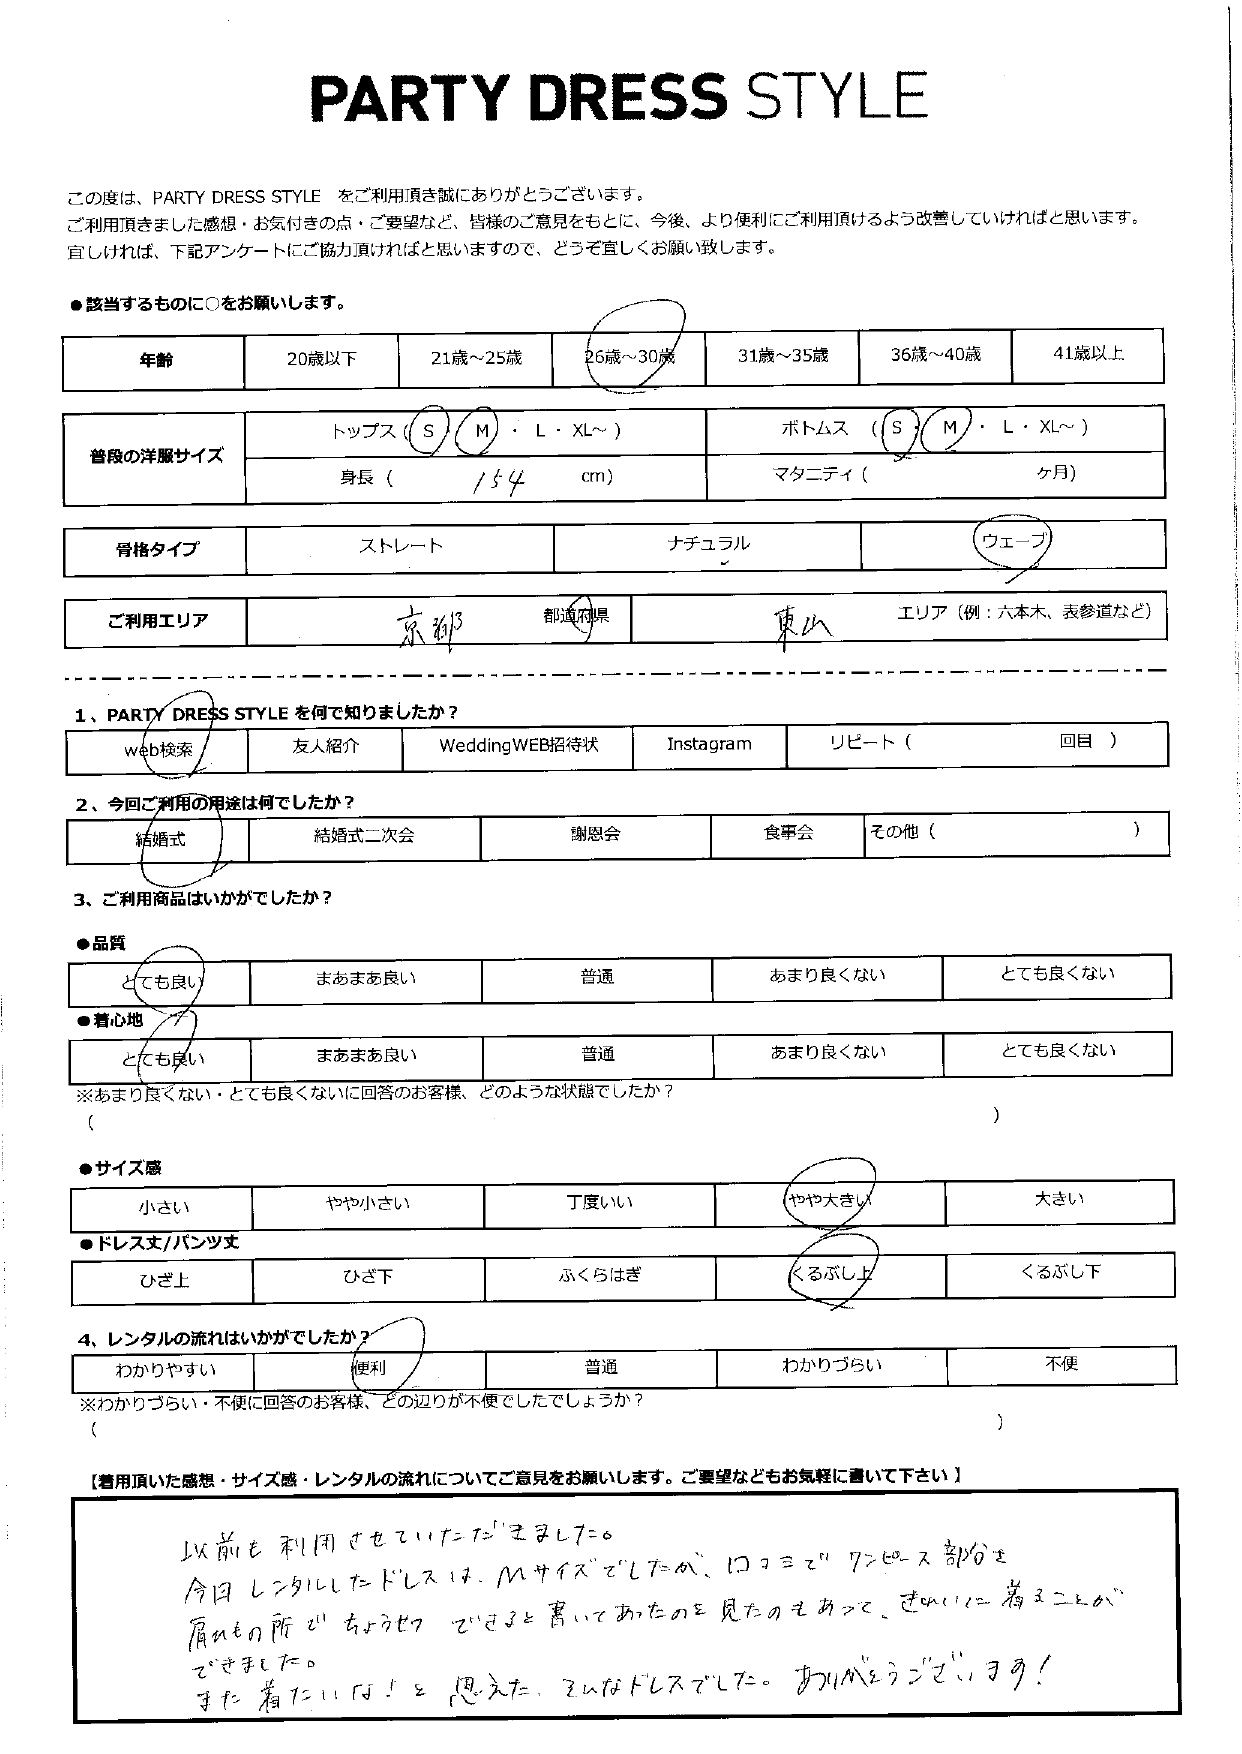 PARTY DRESS STYLE
この度は、PARTY DRESS STYLE をご利用頂き誠にありがとうございます。
ご利用頂きました感想・お気付きの点・ご要望など、皆様のご意見をもとに、今後、より便利にご利用頂けるよう改善していければと思います。
宜しければ、下記アンケートにご協力頂ければと思いますので、どうぞ宜しくお願い致します。
●該当するものに○をお願いします。
年齢 20歳以下 21歳～25歳 26歳～30歳 31歳～35歳 36歳～40歳 41歳以上
普段の洋服サイズ トップス ( S ・ M ・ L ・ XL～ ) ボトムス ( S ・ M ・ L ・ XL～ )
身長 ( 154 cm) マタニティ ( ケ月)
骨格タイプ ストレート ナチュラル ウェーブ
ご利用エリア 京都 都道府県 東山 エリア（例：六本木、表参道など）
1、PARTY DRESS STYLE を何で知りましたか？
web検索 友人紹介 WeddingWEB招待状 Instagram リピート ( 回目 )
2、今回ご利用の用途は何でしたか？
結婚式 結婚式二次会 謝恩会 食事会 その他 ( )
3、ご利用商品はいかがでしたか？
●品質
とても良い まあまあ良い 普通 あまり良くない とても良くない
●着心地
とても良い まあまあ良い 普通 あまり良くない とても良くない
※あまり良くない・とても良くないに回答のお客様、どのような状態でしたか？
( )
●サイズ感
小さい やや小さい 丁度いい やや大きい 大きい
●ドレス丈/パンツ丈
ひざ上 ひざ下 ふくらはぎ くるぶし上 くるぶし下
4、レンタルの流れはいかがでしたか？
わかりやすい 便利 普通 わかりづらい 不便
※わかりづらい・不便に回答のお客様、どの辺りが不便でしたでしょうか？
( )
【着用頂いた感想・サイズ感・レンタルの流れについてご意見をお願いします。ご要望などもお気軽に書いて下さい 】
以前も利用させていただきました。
今回レンタルしたドレスは、Mサイズでしたが、口コミでワンピース部分を
肩ひもの所でちょうせつできると書いてあったのを見たのもあって、きれいに着ることが
できました。
また着たいな！と思えた、そんなドレスでした。ありがとうございます！